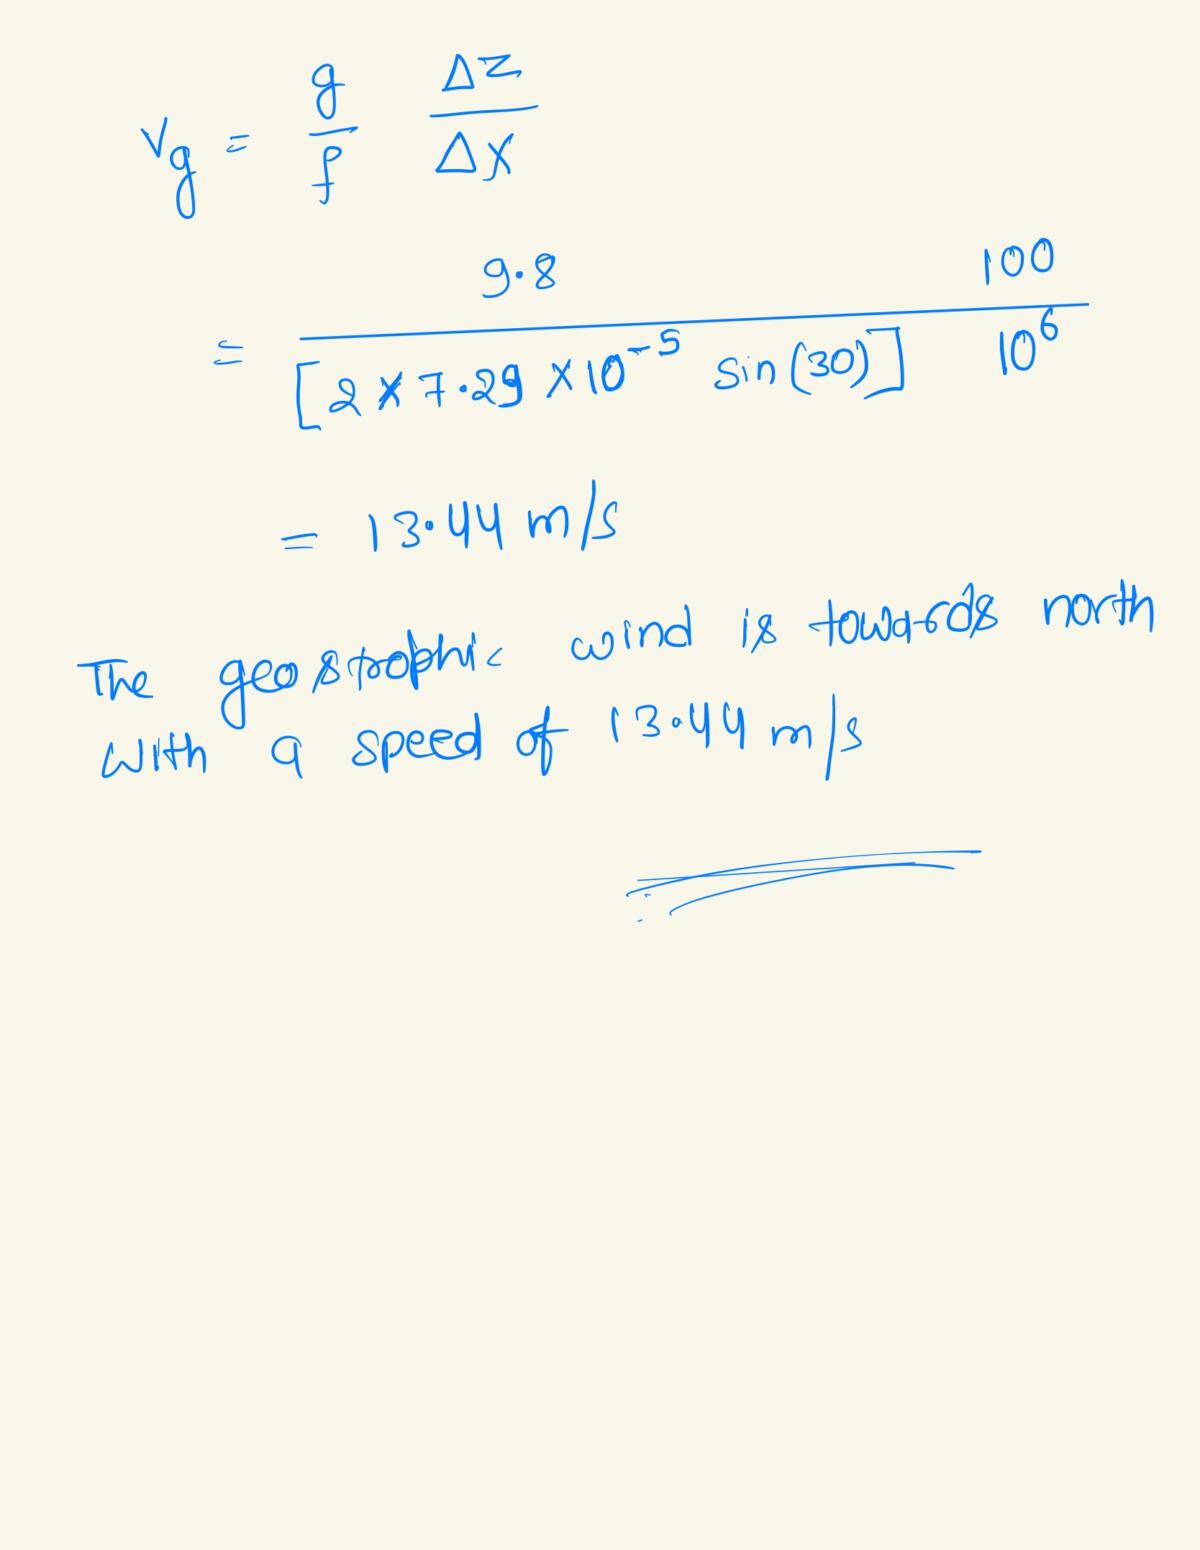 v_g = g/f Δz/Δx
= 9.8 / [2 × 7.29 × 10^-5 sin(30)] 100 / 10^6
= 13.44 m/s
The geostrophic wind is towards north
with a speed of 13.44 m/s